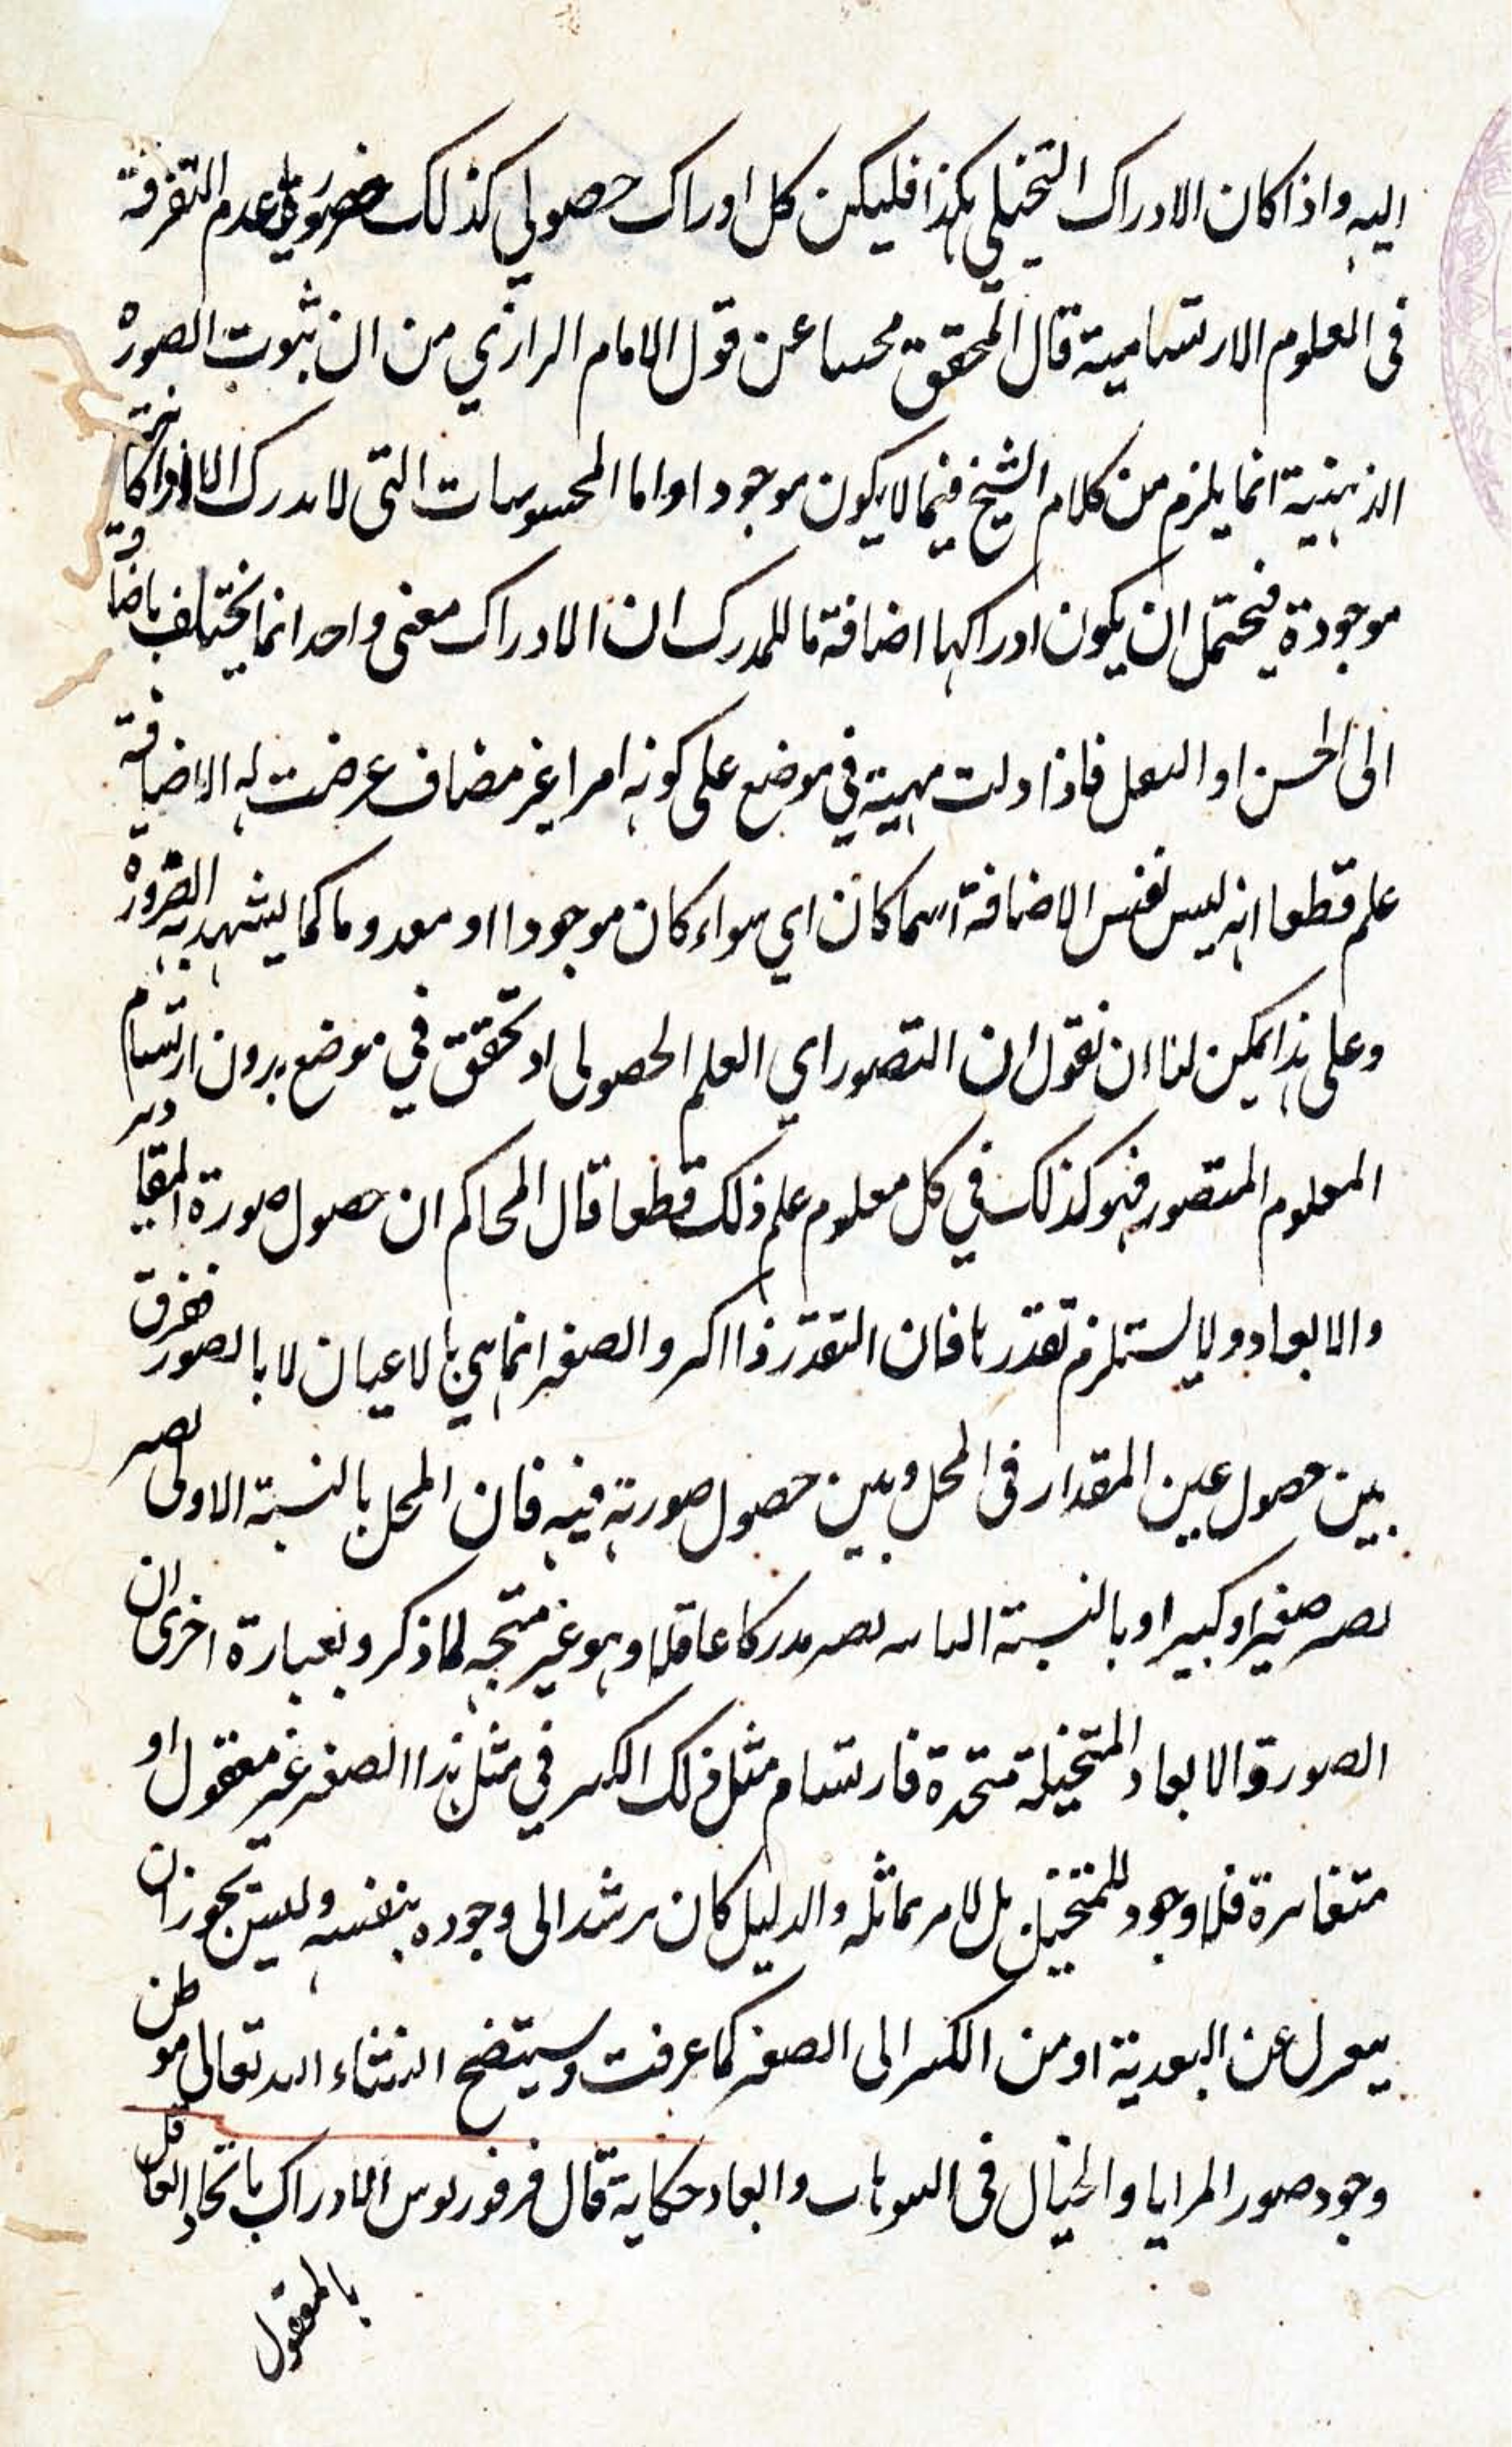 اليه واذا كان الادراك التخيلي هكذا فليكن كل ادراك حصولي كذلك ضرورة عدم التفرقة
في العلوم الارتسامية قال المحقق محسا عن قول الامام الرازي من ان ثبوت الصورة
الذهنية انما يلزم من كلام الشيخ فيما لا يكون موجودا واما المحسوسات التي لا مدرك الا اذا كانت
موجودة فيحتمل ان يكون ادراكها اضافة ما للمدرك ان الادراك معنى واحد انما يختلف باضافته
الى الحس او العقل فاذا دلت مهية في موضع على كونه امرا غير مضاف عرضت له الاضافة
علم قطعا انه ليس نفس الاضافة اسما كان اي سواء كان موجودا او معدوما كما يشهد به الضرورة
وعلى هذا يمكن لنا ان نقول ان التصور اي العلم الحصولي اذ تحقق في موضع بدون ارتسام
المعلوم المتصور فهو كذلك في كل معلوم علم ذلك قطعا قال المحاكم ان حصول صورة المقادير
والابعاد ولا يستلزم تقدرنا فان التقدر ذا اكبر والصغر انما هي بالاعيان لا بالصور ففرق
بين حصول عين المقدار في المحل وبين حصول صورته فيه فان المحل بالنسبة الاولى تصير
نصير صغيرا وكبيرا وبالنسبة الثانيه نصير مدركا عاقلا وهو غير متجه لما ذكر وبعبارة اخرى ان
الصورة والابعاد المتخيلة متحدة فارتسام مثل ذلك الكبير في مثل هذا الصغير غير معقول او
متغايرة فلا وجود للمتخيل بل لامر يماثله والدليل كان يرشد الى وجوده بنفسه وليس تجوز ان
بمعزل عن البعدية او من الكبير الى الصغير كما عرفت وسيتضح انشاء الله تعالى موطن
وجود صور المرايا والخيال في السوابات والعاد حكاية قال فرفوريوس الادراك باتحاد العاقل
بالمعقول